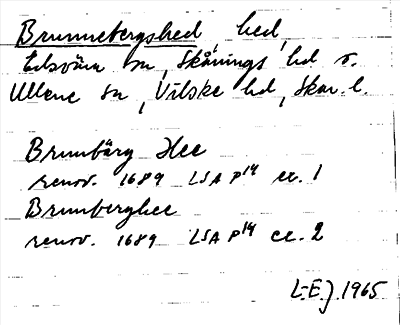 Brunnebergshed hed,
Edsvära sn, Skånings hd o.
Ullene sn, Vilske hd, Skar. l.
Brumbärg Hee
renov. 1689 LSA P14 ex. 1
Brumberghee
renov. 1689 LSA P14 ex. 2
L-Ej 1965